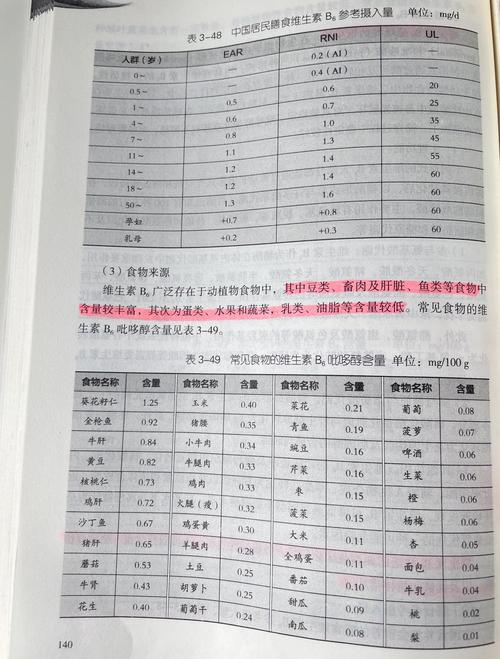 表 3-48 中国居民膳食维生素 B₆ 参考摄入量 单位：mg/d
人群（岁） EAR RNI UL
0~ — 0.2（AI） —
0.5~ — 0.4（AI） —
1~ 0.5 0.6 20
4~ 0.6 0.7 25
7~ 0.8 1.0 35
11~ 1.1 1.3 45
14~ 1.2 1.4 55
18~ 1.2 1.4 60
50~ 1.3 1.6 60
孕妇 +0.7 +0.8 60
乳母 +0.2 +0.3 60
（3）食物来源
维生素 B₆ 广泛存在于动植物食物中，其中豆类、畜肉及肝脏、鱼类等食物中
含量较丰富，其次为蛋类、水果和蔬菜，乳类、油脂等含量较低。常见食物的维
生素 B₆ 吡哆醇含量见表 3-49。
表 3-49 常见食物的维生素 B₆ 吡哆醇含量 单位：mg/100 g
食物名称 含量 食物名称 含量 食物名称 含量 食物名称 含量
葵花籽仁 1.25 玉米 0.40 菜花 0.21 葡萄 0.08
金枪鱼 0.92 猪腰 0.35 青鱼 0.19 菠萝 0.07
牛肝 0.84 小牛肉 0.34 豌豆 0.16 啤酒 0.06
黄豆 0.82 牛腿肉 0.33 芹菜 0.16 生菜 0.06
核桃仁 0.73 鸡肉 0.33 枣 0.15 橙 0.06
鸡肝 0.72 火腿（瘦） 0.32 菠菜 0.15 杨梅 0.06
沙丁鱼 0.67 鸡蛋黄 0.30 大米 0.11 杏 0.05
猪肝 0.65 羊腿肉 0.28 全鸡蛋 0.11 面包 0.04
蘑菇 0.53 土豆 0.25 番茄 0.10 牛乳 0.04
牛肾 0.43 胡萝卜 0.25 甜瓜 0.09 桃 0.02
花生 0.40 葡萄干 0.24 南瓜 0.08 梨 0.01
140